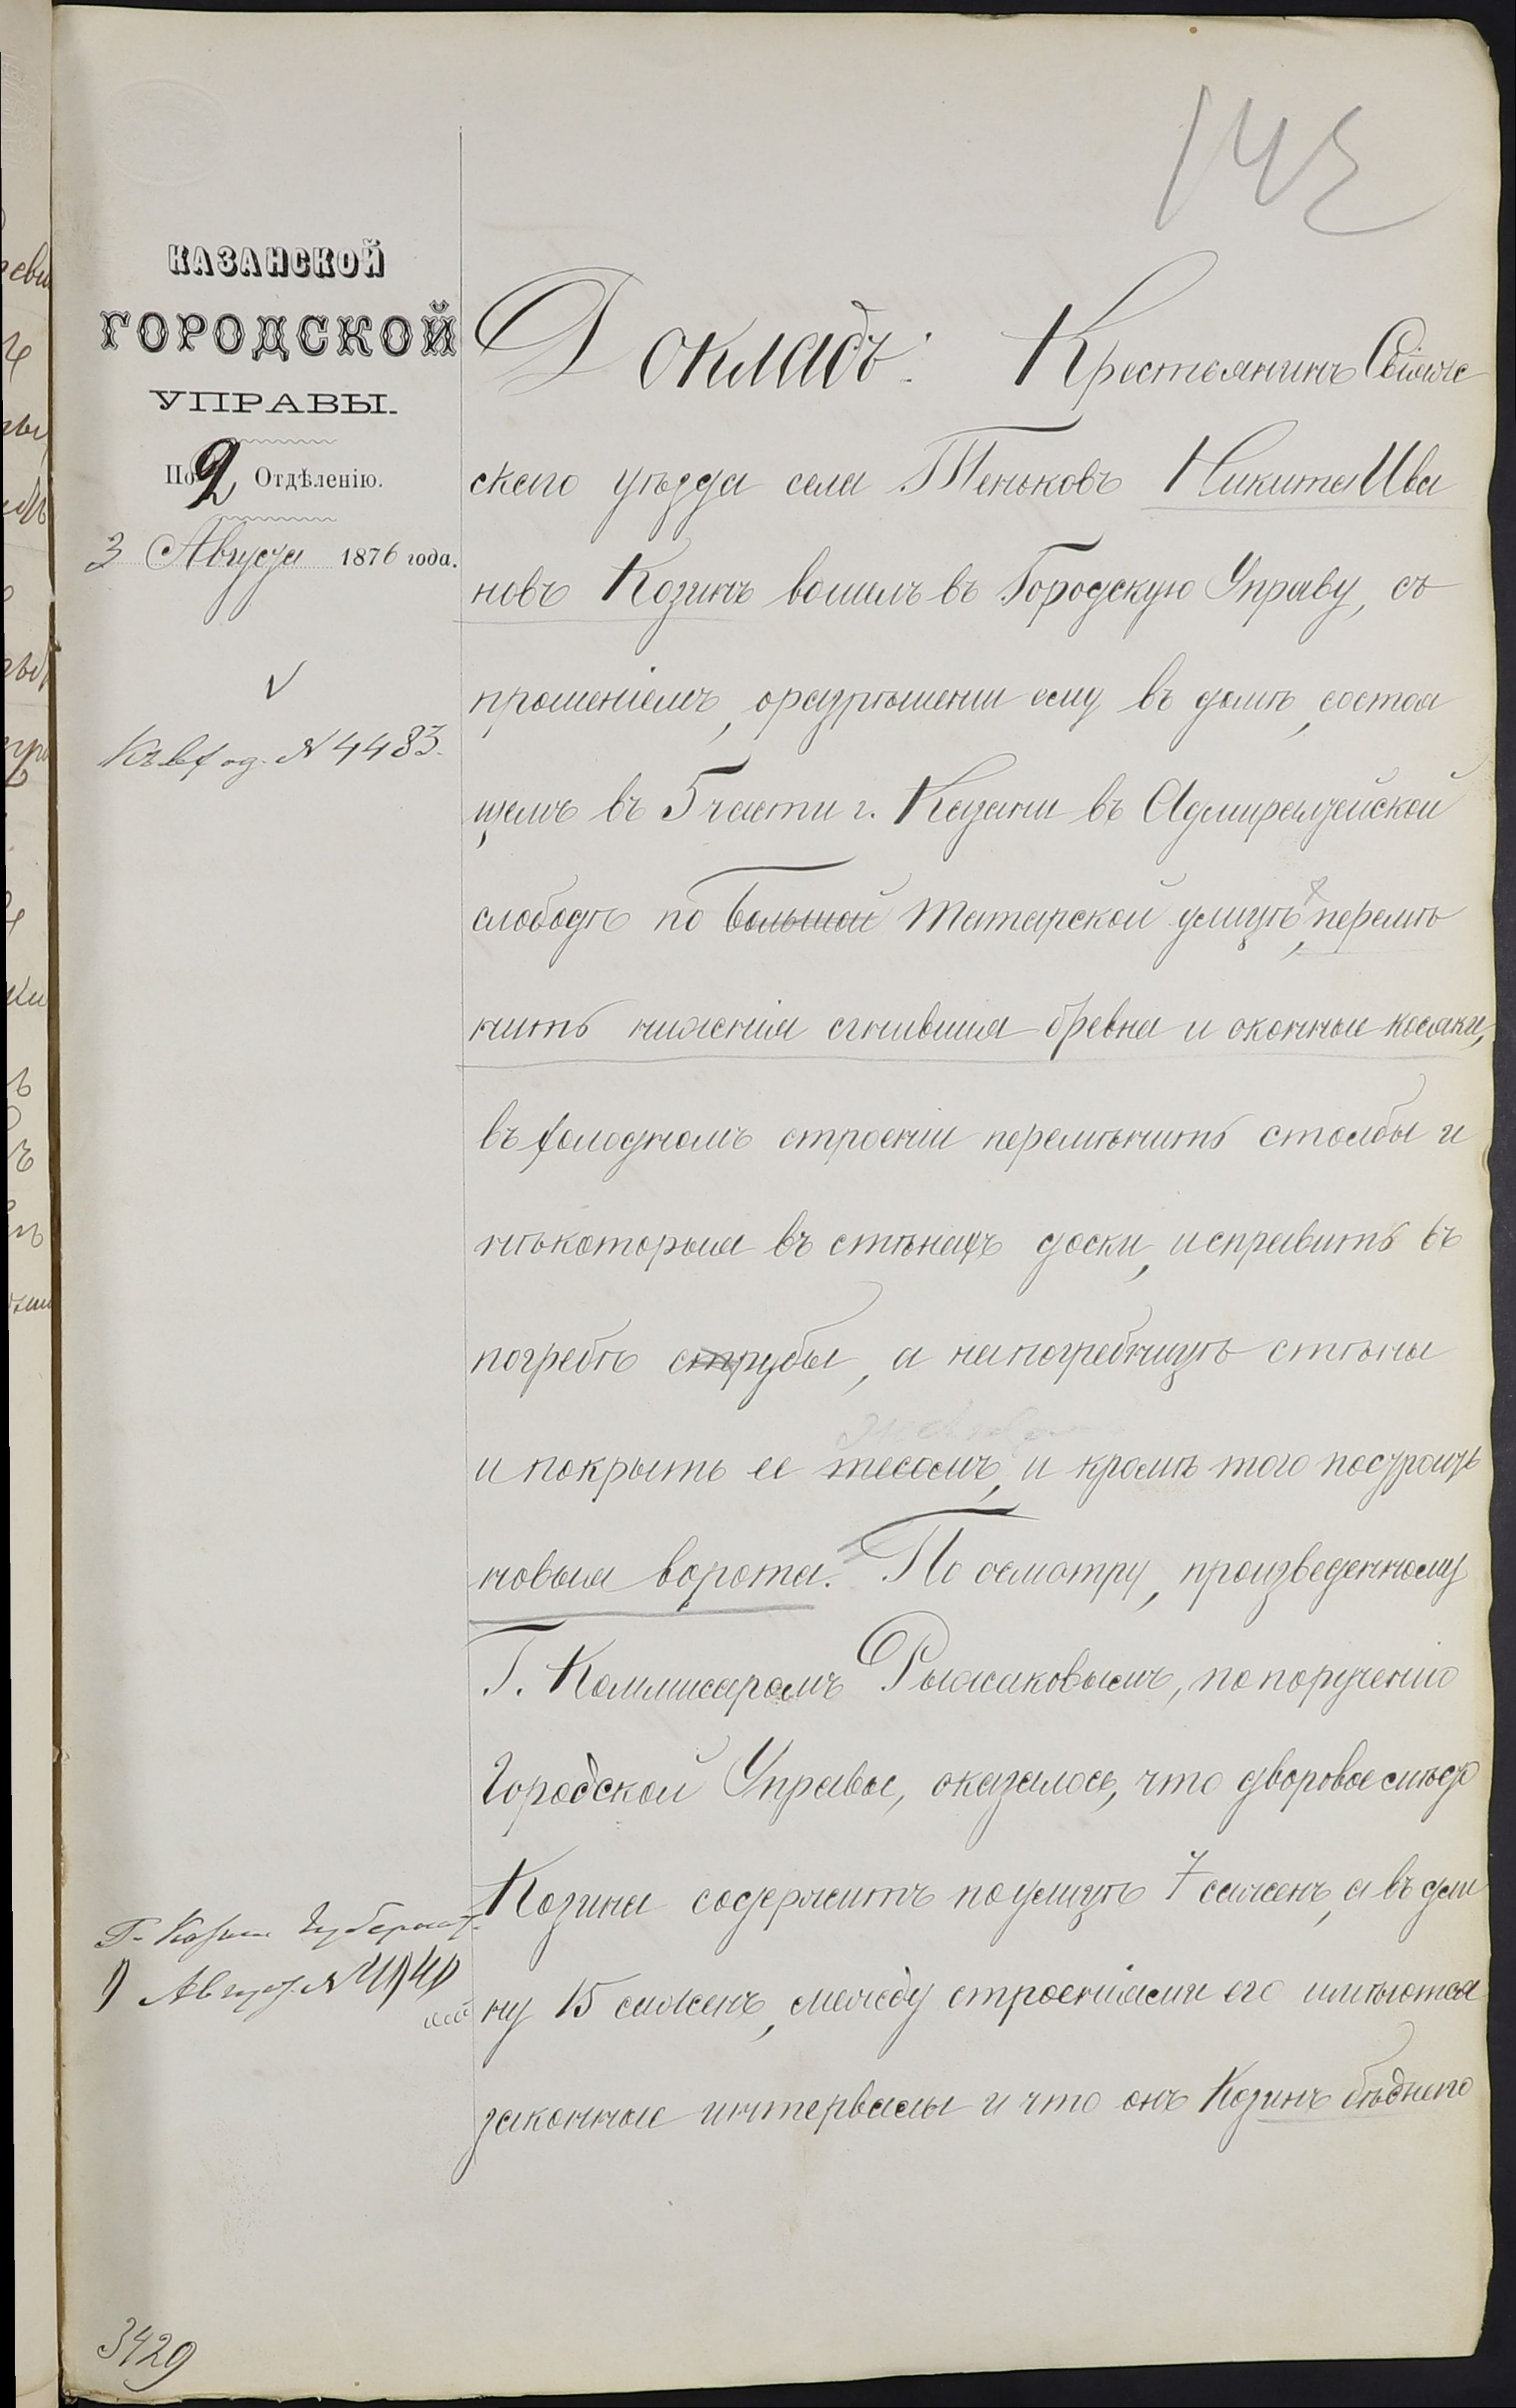 142
КАЗАНСКОЙ
ГОРОДСКОЙ
УПРАВЫ.
По 2 Отдѣленію.
3 Августа 1876 года.
Къ вход. № 4483.
Докладъ: Крестьянинъ Свіяж
скаго уѣзда села Теньковъ Никита Ива
новъ Козинъ вошелъ въ Городскую Управу, съ
прошеніемъ, о разрѣшеніи ему въ домѣ, состоя
щемъ въ 5 части г. Казани въ Адмиралтейской
слободѣ по Большой Татарской улицѣ, перемѣ
нить нижнія сгнившія бревна и оконные косяки,
въ холодномъ строеніи перемѣнить столбы и
нѣкоторыя въ стѣнахъ доски, исправить въ
погребѣ струбы, а на погребницѣ стѣны
и покрыть ее тесомъ, и кромѣ того построить
новыя ворота. По осмотру, произведенному
Г. Коммисаромъ Рыжаковымъ, по порученію
Городской Управы, оказалось, что дворовое мѣсто
Козина содержитъ по улицѣ 7 саженъ, а въ дли
ну 15 саженъ, между строеніями его имѣются
законные интервалы и что онъ Козинъ бѣднаго
Г. Казан. Губернат.
Август. №
3429